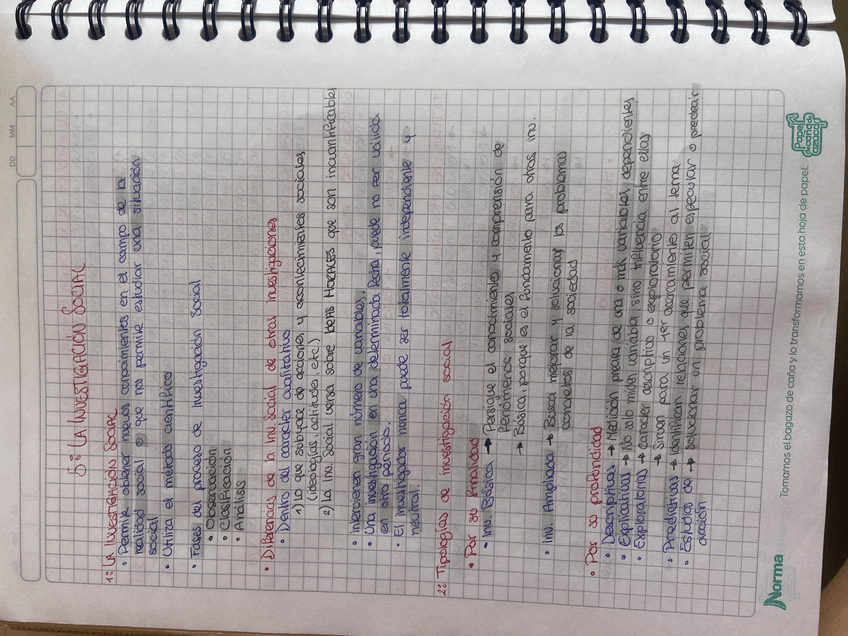 DD MM AA
5: LA INVESTIGACIÓN SOCIAL
1: LA INVESTIGACIÓN SOCIAL
• Permite obtener nuevos conocimientos en el campo de la
realidad social o que nos permite estudiar una situación
social
• Utiliza el método científico
• Fases del proceso de Investigación Social
• Observación
• Clasificación
• Análisis
• Diferencias de la Inv. Social de otras investigaciones
• Dentro del carácter cualitativo
1) Lo que subyace de acciones y acontecimientos sociales
(ideologías, actitudes, etc.)
2) La Inv. Social versa sobre IDEAS MORALES que son incuantificables
• Intervienen gran número de variables.
• Una investigación en una determinada fecha, puede no ser válida
en otro período.
• El investigador nunca puede ser totalmente independiente y
neutral.
2: Tipologías de investigación social
• Por su finalidad
• Inv. Básica → Persigue el conocimiento y comprensión de
fenómenos sociales
→ Básica, porque es el fundamento para otras inv.
• Inv. Ampliada → Busca mejorar y solucionar los problemas
concretos de la sociedad
• Por su profundidad
• Descriptivas → Medición previa de una o más variables dependientes
• Explicativas → No solo miden variable, sino influencia entre ellas
• Exploratorias → carácter descriptivo o exploratorio
→ Sirven para un 1er acercamiento al tema
• Predictivas → identifican relaciones que permiten especular o predecir
• Estudios de → Solucionar un problema social
acción
Norma
Tomamos el bagazo de caña y lo transformamos en esta hoja de papel.
Papel
de caña de
azúcar